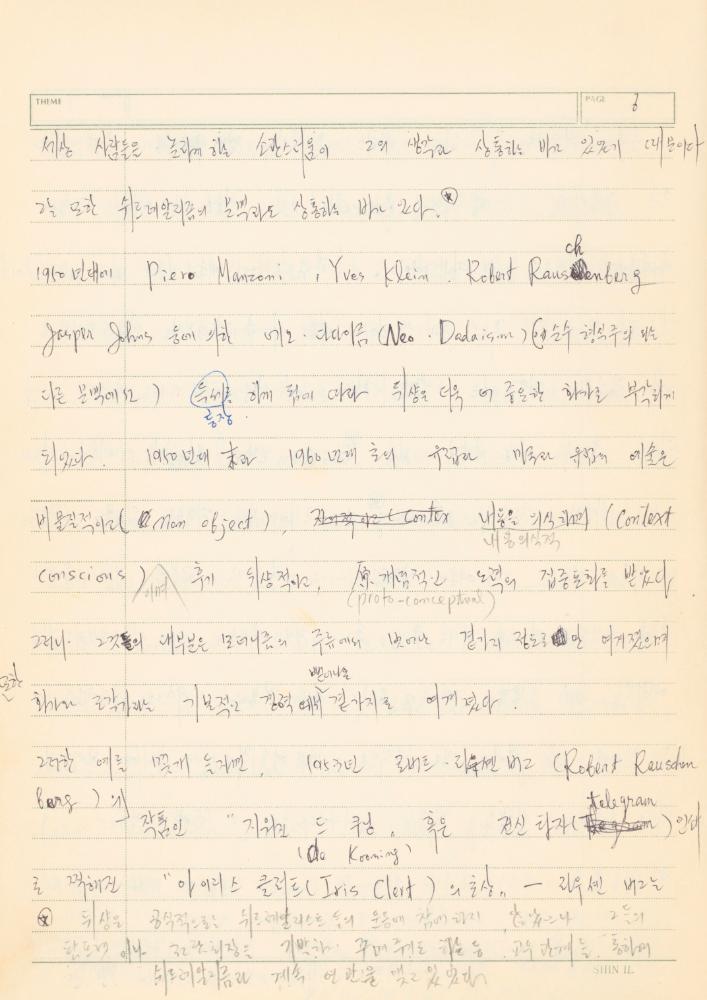 THEME PAGE 6
세상 사람들을 놀라게 하는 소란스러움이 그의 생각과 상통하는 바가 있었기 때문이다
그는 또한 쉬르레알리즘의 문맥과도 상통하는 바가 있다.
1950년대에 Piero Manzoni, Yves Klein. Robert Rauschenberg
Jasper Johns 등에 의한 네오·다다이즘 (Neo·Dadaism) 순수 형식주의 와는
다른 문맥에서) 득세를 하게 됨에 따라 뒤샹은 더욱 더 중요한 화가로 부각하게
등장.
되었다. 1950년대 末과 1960년대 초의 유럽과 미국과 유럽의 예술은
비물질적이고(Non object), 내용을 의식하며 (Context
내용의식적
conscious) 이며 후기 뒤샹적이고, 原개념적인 노력의 집중포화를 받았다
(proto-conceptual)
그러나 그것들의 대부분은 모더니즘의 주류에서 벗어난 곁가지 정도로만 여겨졌으며
또한 화가와 조각가라는 기본적인 경력에서 벗어나온 곁가지로 여겨졌다.
그러한 예를 몇개 들자면, 1953년 로버트·라우센버그 (Robert Rauschen
berg)의
작품인 "지워진 드 쿠닝" 혹은 전신 타자(telegram)인쇄
(de Kooning)
로 찍혀진 "아이리스 클러트(Iris Clert)의 초상" — 라우센버그는
뒤샹은 공식적으로는 쉬르레알리스트들의 운동에 참여하지 않았으나 그들의
꾸며주기도 하는 등 통하여
쉬르레알리즘과 계속 연관을 맺고 있었다.
SHIN IL